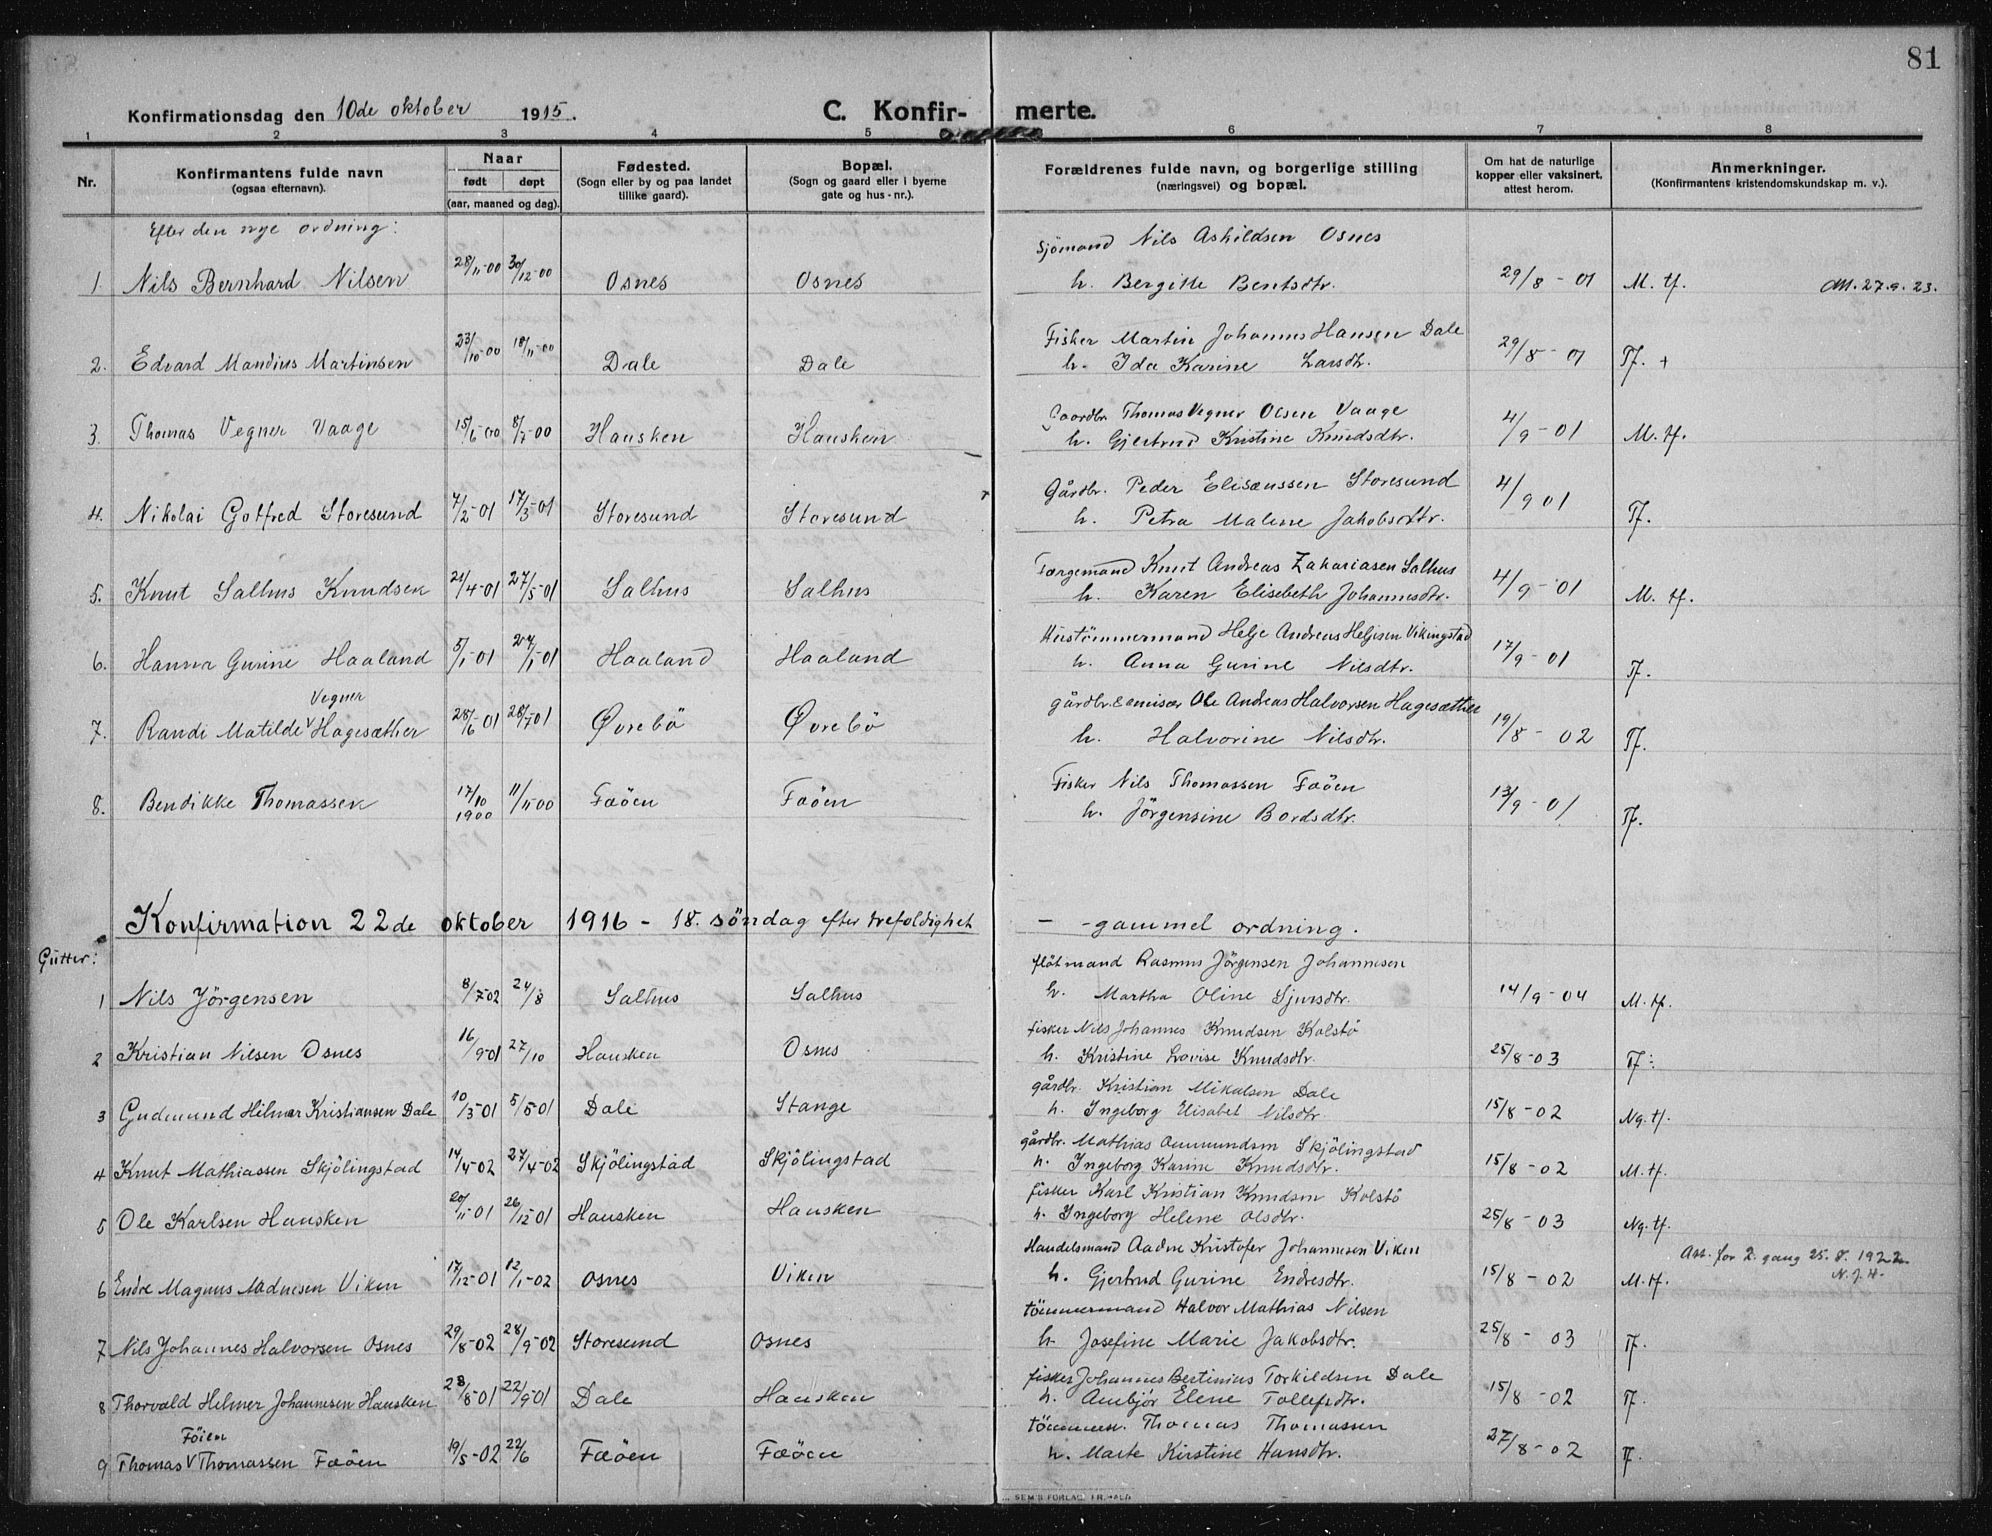 81
Konfirmationsdag den 10de oktober 1915. C. Konfirmerte.
1 2 3 4 5 6 7 8
Nr. Konfirmantens fulde navn (ogsaa efternavn). Naar født døpt (aar, maaned og dag). Fødested. (Sogn eller by og paa landet tillike gaard). Bopæl. (Sogn og gaard eller i byerne gate og hus-nr.). Forældrenes fulde navn, og borgerlige stilling (næringsvei) og bopæl. Om hat de naturlige kopper eller vaksinert, attest herom. Anmerkninger. (Konfirmantens kristendomskundskap m. v.).
Efter den nye ordning:
Sjömand Nils Askildsen Osnes
1. Nils Bernhard Nilsen 28/11-00 30/12-00 Osnes Osnes h. Bergitte Bentsdtr. 29/8-01 M. tf. Att. 27.9.23.
Fisker Martin Johannes Hansen Dale
2. Edvard Mandius Martinsen 23/10-00 18/11-00 Dale Dale h. Ida Karine Larsdtr. 29/8-01 Tf. +
Gaardbr. Thomas Vegner Olsen Vaage
3. Thomas Vegner Vaage 15/6-00 8/7-00 Hausken Hausken h. Gjertrud Kristine Knudsdtr. 4/9-01 M. tf.
Gårdbr. Peder Elisæussen Storesund
4. Nikolai Gotfred Storesund 7/2-01 17/3-01 Storesund Storesund h. Petra Maline Jakobsdtr. 4/9 01 Tf.
Færgemand Knut Andreas Zakariasen Salhus
5. Knut Salhus Knudsen 21/4-01 27/5-01 Salhus Salhus h. Karen Elisebeth Johannesdtr. 4/9-01 M. tf.
Hustömmermand Helje Andreas Heljesen Vikingstad
6. Hanna Gurine Haaland 5/1-01 27/1-01 Haaland Haaland h. Anna Gurine Nilsdtr. 17/9-01 Tf.
Vegner gårdbr. Ole Andreas Halvorsen Hagesæther
7. Randi Matilde v Hagesæther 28/6-01 28/7-01 Øvrebö Øvrebö h. Halvorine Nilsdtr. 19/8-02 Tf.
Fisker Nils Thomassen Faöen
8. Bendikke Thomassen 17/10 1900 11/11-00 Fæöen Faöen h. Jörgensine Bordsdtr. 13/9-01 Tf.
Konfirmation 22de oktober 1916 - 18. söndag efter trefoldighet - -gammel ordning.
Gutter: flötmand Rasmus Jörgensen Johannesen
1 Nils Jörgensen 8/7-02 24/8 Salhus Salhus h. Martha Oline Sjursdtr. 14/9-04 M. tf.
fisker Nils Johannes Knudsen Kolstö
2 Kristian Nilsen Osnes 16/9-01 27/10 Hausken Osnes h. Kristine Lovise Knudsdtr. 25/8-03 Tf.
gårdbr. Kristian Mikalsen Dale
3 Gudmund Hilmar Kristiansen Dale 10/3-01 5/5-01 Dale Stange h. Ingeborg Elisabet Nilsdtr. 15/8-02 Ng. tf.
gårdbr. Mathias Ommundsen Skjölingstad
4 Knut Mathiassen Skjölingstad 14/4-02 27/4-02 Skjölingstad Skjölingstad h. Ingeborg Karine Knudsdtr. 15/8-02 M. tf.
fisker Karl Kristian Knudsen Kolstö
5 Ole Karlsen Hausken 20/11-01 26/12-01 Hausken Hausken h. Ingeborg Helene Olsdtr. 25/8-03 Ng. tf.
Handelsmand Aadne Kristofer Johannesen Viken Att. for 2. gang 25.8.1922.
6 Endre Magnus Adnesen Viken 17/12-01 12/1-02 Osnes Viken h. Gjertrud Gurine Endresdtr. 15/8-02 M. tf. N.J.H.
tömmermand Halvor Mathias Nilsen
7 Nils Johannes Halvorsen Osnes 29/8-02 28/9-02 Storesund Osnes h. Josefine Marie Jakobsdtr. 25/8-03 Tf.
fisker Johannes Bertinius Torkildsen Dale
8 Thorvald Helmer Johannesen Hausken 28/8-01 22/9-01 Dale Hausken h. Ambjör Elene Tollefsdtr. 15/8-02 Tf
Föien tömmerm. Thomas Thomassen
9 Thomas v Thomassen Fæöen 19/5-02 22/6 Fæöen Fæöen h. Marte Kirstine Hansdtr. 27/8-02 Tf
SEM'S FORLAG, FR.HALD